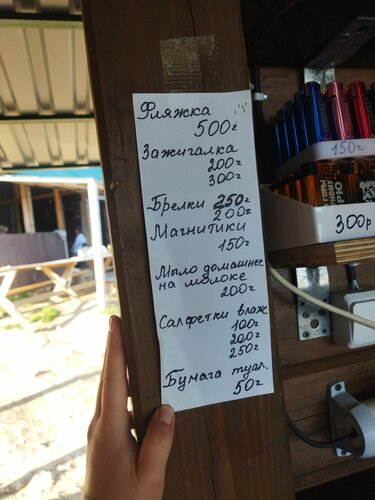 Фляжка
500г
Зажигалка
200г
300г
Брелки 250г
200г
Магнитики
150г
Мыло домашнее
на молоке
200г
Салфетки влаж
100г
200г
250г
Бумага туал.
50г
150г
300р